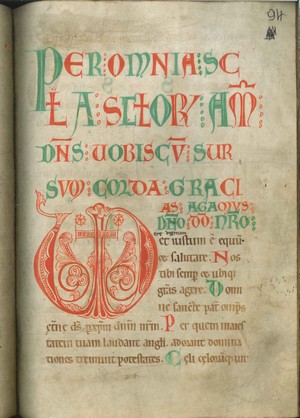 94
PER OMNIA SC
LA SCLTORV AM
DNS UOBISCV SUR
SVM CORDA GRACI
AS AGAMVS
DNO DO NRO
et iustum ē equū
re salutare. Nos
tibi semp et ubiq
gras agere. Domi
ne sancte pat omps
etne ds. p xpm dnm nrm. Per quem maies
tatem tuam laudant angli. adorant domina
tiones tremunt potestates. Celi celorūq; uir